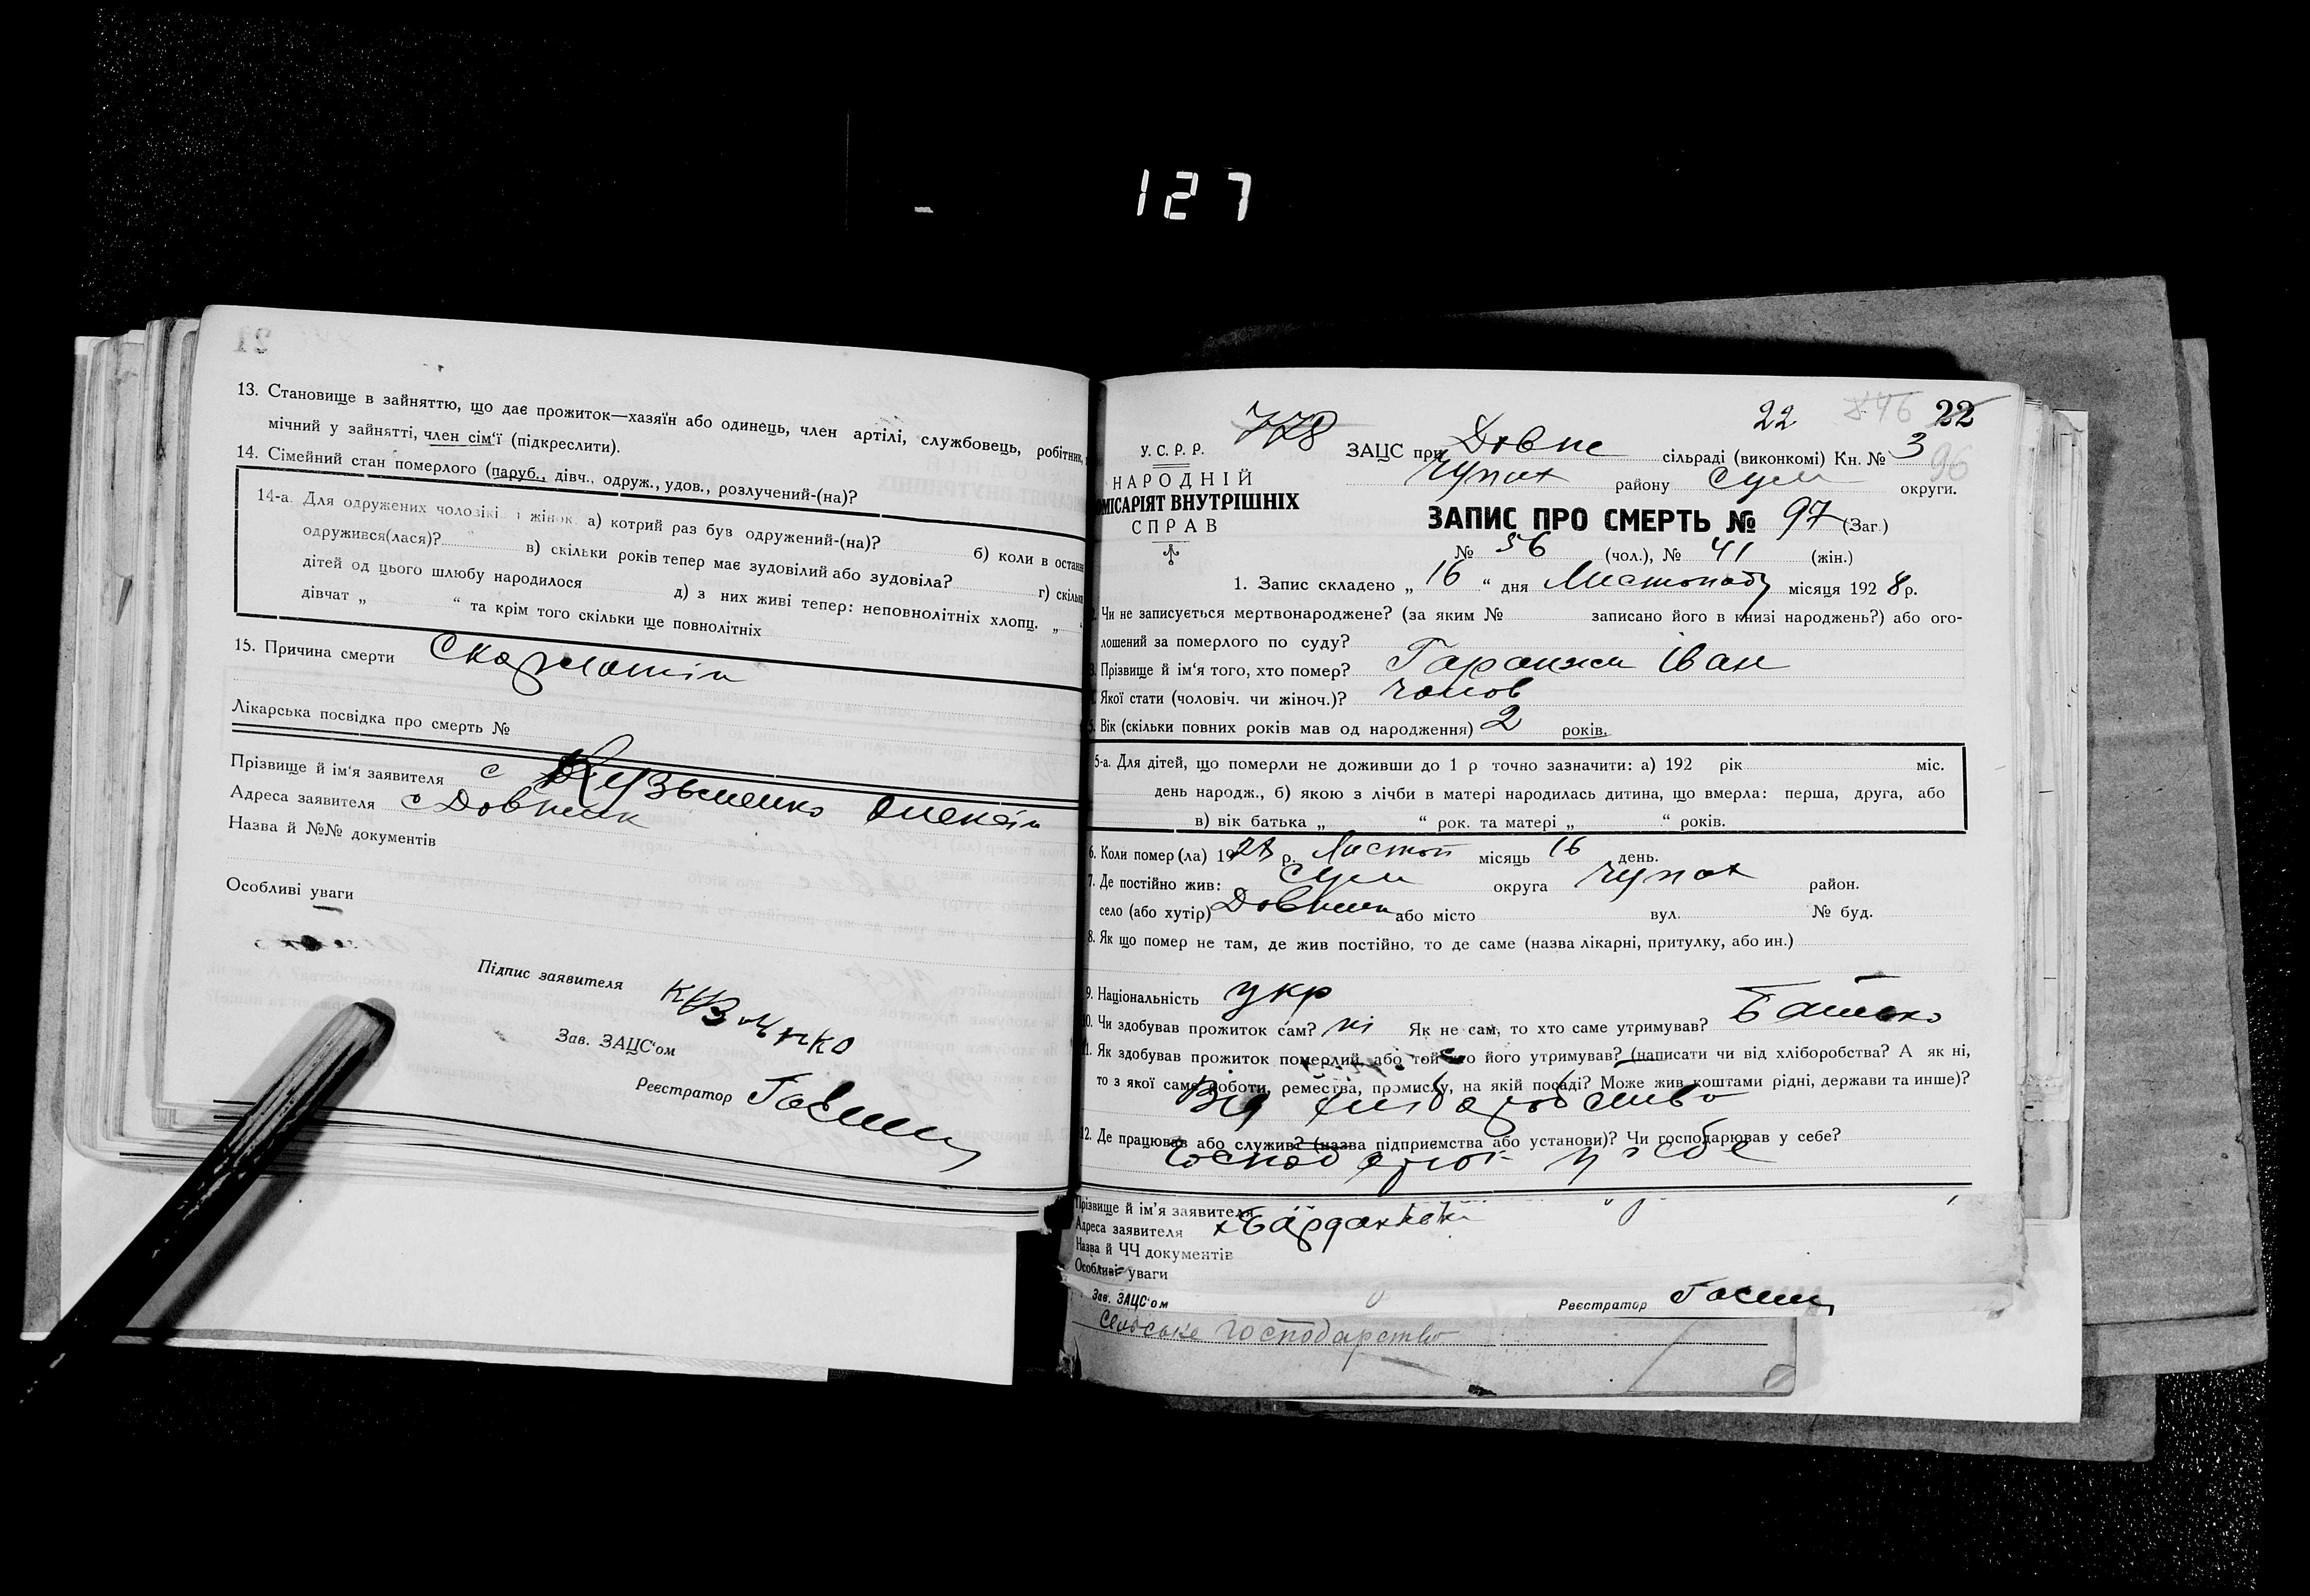 127
21
13. Становище в зайняттю, що дає прожиток—хазяїн або одинець, член артілі, службовець, робітник,
мічний у зайнятті, член сім'ї (підкреслити).
14. Сімейний стан померлого (паруб., дівч., одруж., удов., розлучений-(на)?
14-а. Для одружених чоловікі і жінок а) котрий раз був одружений-(на)? б) коли в останн
одружився(лася)? в) скільки років тепер має зудовілий або зудовіла? г) скільк
дітей од цього шлюбу народилося д) з них живі тепер: неповнолітніх хлопц. „
дівчат „ “ та крім того скільки ще повнолітніх
15. Причина смерти Скарлатін
Лікарська посвідка про смерть №
Прізвище й ім'я заявителя с Кузьменко Олексій
Адреса заявителя с Довжик
Назва й №№ документів
Особливі уваги
Підпис заявителя Кузменко
Зав. ЗАЦС'ом
Реєстратор
778
22 846 22
У. С. Р. Р.
ЗАЦС при Довж сільраді (виконкомі) Кн. № 3
96
НАРОДНІЙ
Чупах району Сум округи.
ОМІСАРІЯТ ВНУТРІШНІХ
СПРАВ
ЗАПИС ПРО СМЕРТЬ № 97 (Заг.)
№ 56 (чол.), № 41 (жін.)
1. Запис складено „ 16 “ дня Листопаду місяця 192 8 р.
Чи не записується мертвонароджене? (за яким № записано його в книзі народжень?) або ого-
лошений за померлого по суду?
3. Прізвище й ім'я того, хто помер? Гаранжа Іван
Якої стати (чоловіч. чи жіноч.)? чолов
5. Вік (скільки повних років мав од народження) 2 років.
5-а. Для дітей, що померли не доживши до 1 р точно зазначити: а) 192 рік міс.
день народж., б) якою з лічби в матері народилась дитина, що вмерла: перша, друга, або
в) вік батька „ “ рок. та матері „ “ років.
6. Коли помер(ла) 1928 р. Листоп місяць 16 день.
7. Де постійно жив: Сум округа Чупах район.
село (або хутір) Довжик або місто вул. № буд.
8. Як що помер не там, де жив постійно, то де саме (назва лікарні, притулку, або ин.)
9. Національність укр
10. Чи здобував прожиток сам? ні Як не сам, то хто саме утримував? Батько
11. Як здобував прожиток померлий, або той хто його утримував? (написати чи від хліборобства? А як ні,
то з якої саме роботи, ремества, промислу, на якій посаді? Може жив коштами рідні, держави та инше)?
Від хліборобства
12. Де працював або служив? (назва підприємства або установи)? Чи господарював у себе?
у себе
Прізвище й ім'я заявителя
Адреса заявителя
Назва й ЧЧ документів
Особливі уваги
Зав. ЗАЦС'ом
Реєстратор
Сільське господарство